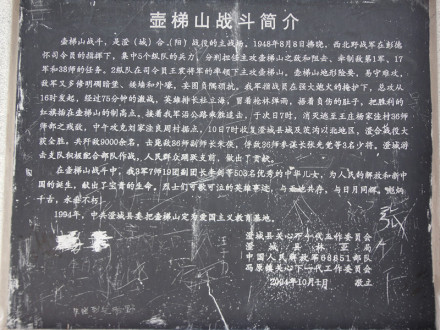 壶梯山战斗简介
壶梯山战斗,是澄(城)合(阳)战役的主战场。1948年8月8日拂晓,西北野战军在彭德
怀司令员的指挥下,集中5个纵队的兵力,分别担任主攻壶梯山之敌和阻击、牵制敌第1军、17
军和38师的任务。2纵队在司令员王震将军的率领下主攻壶梯山。壶梯山地形险要,易守难攻,
敌军又多修明碉暗堡、矮墙和外壕,妄图负隅顽抗。我军指战员在强大炮火的掩护下,总攻从
16时发起,经过75分钟的激战,英雄排长杜立海,冒着枪林弹雨,捂着负伤的肚子,把胜利的
红旗插在壶梯山的制高点。接着我军沿公路乘胜追击,于次日7时,消灭逃至王庄杨家洼村36师
师部之残敌。中午攻克刘家洼良周村据点,10日7时收复澄城县城及茨沟以北地区,澄合战役大
获全胜。共歼敌9000余名,击毙敌36师副师长朱侠,俘敌36师参谋长张先觉等3名少将。澄城游
击支队积极配合部队作战,人民群众踊跃支前,献出了贡献。
在壶梯山战斗中,我3军7师19团副团长李
为人民的解放和新中
国的诞生,献出了宝贵的生命。烈士们可歌可泣的英雄事迹,与天地共存,与日月同辉,彪炳
千古,永垂不朽!
1994年,中共澄城县委把壶梯山定为爱国主义教育基地。
澄城县关心下一代工作委员会
澄城县林业局
中国人民解放军68651部队
冯原镇关心下一代工作委员会
2004年10月1日 敬立